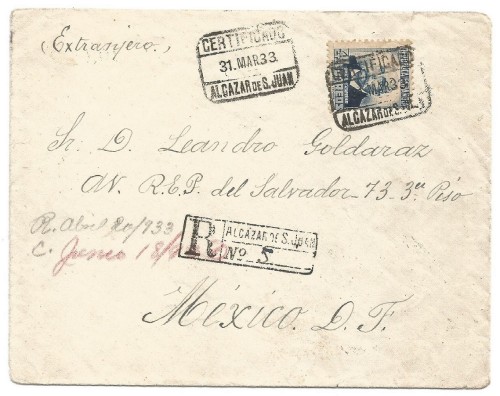 (Extranjero.)
CERTIFICADO
31.MAR.33.
ALCAZAR DE S.JUAN
ALCAZAR DE S.
Sr. D. Leandro Goldaraz
AV. R.E.P. del Salvador-73-3er Piso
R. Abril 20/933
C. Junio 18/
R ALCAZAR DE S.JUAN
Nº 5
México. D. F.